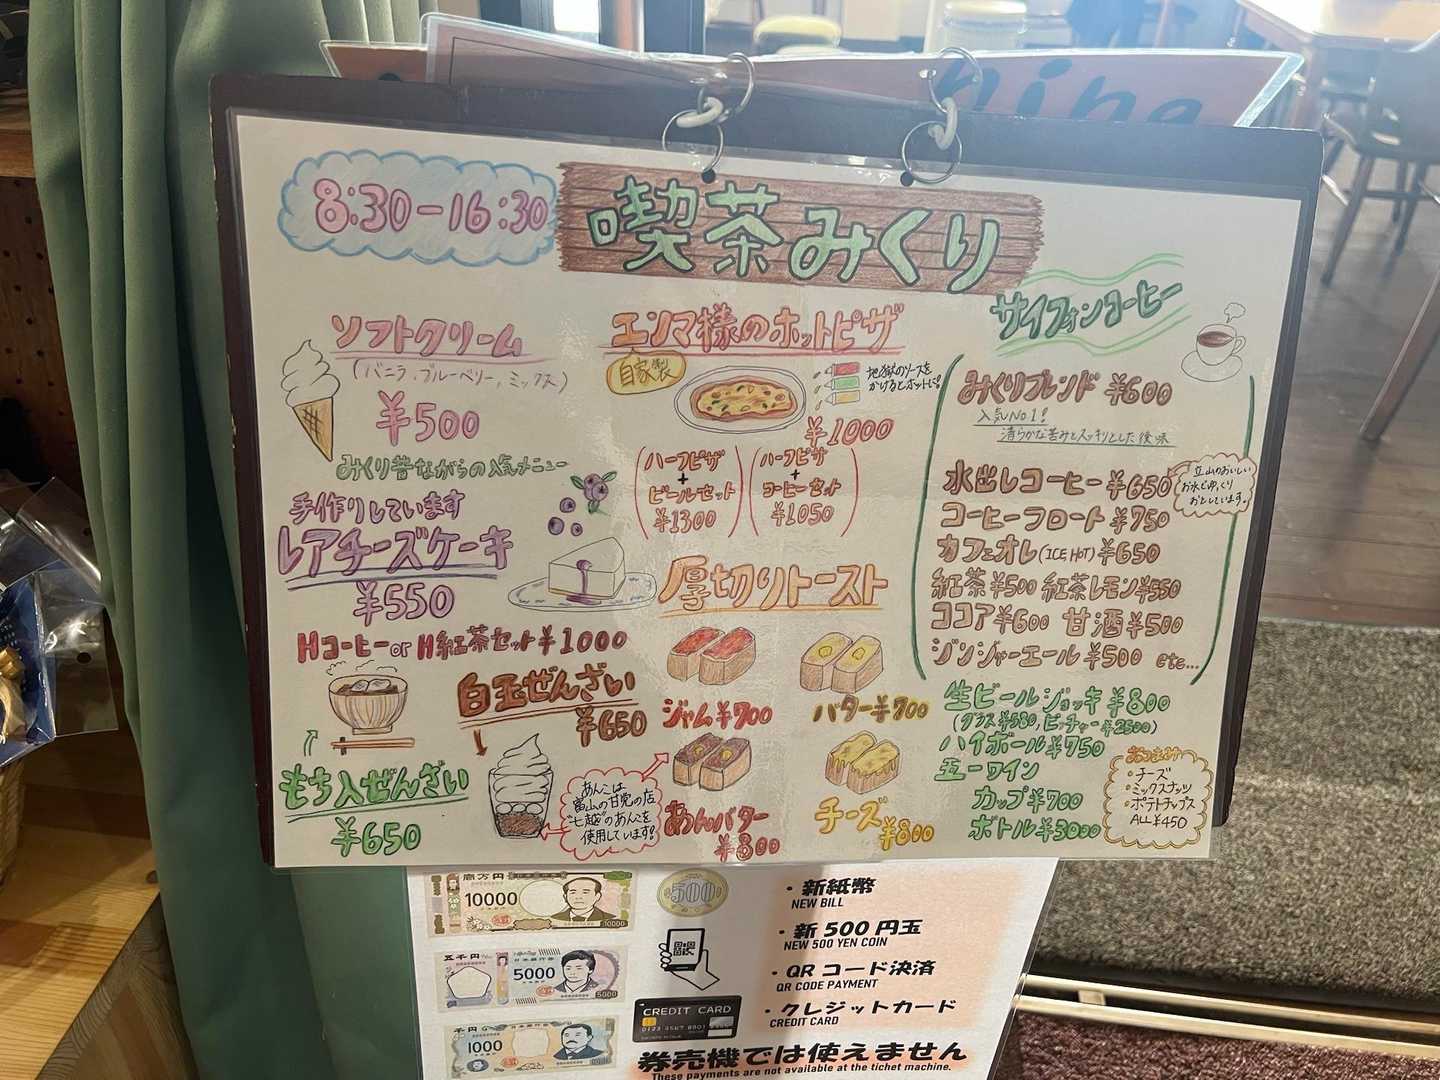 8:30-16:30
喫茶みくり
ソフトクリーム
(バニラ、ブルーベリー、ミックス)
¥500
みくり昔ながらの人気メニュー
手作りしています
レアチーズケーキ
¥550
Hコーヒー or H紅茶セット¥1000
白玉ぜんざい
¥650
もち入ぜんざい
¥650
あんこは
富山の甘党の店
"七越"のあんこを
使用しています!
エンマ様のホットピザ
自家製
地獄のソースを
かけるとホットに!
¥1000
ハーフピザ
+
ビールセット
¥1300
ハーフピザ
+
コーヒーセット
¥1050
厚切りトースト
ジャム¥700
バター¥700
あんバター
¥800
チーズ
¥800
サイフォンコーヒー
みくりブレンド ¥600
人気No.1!
清らかな苦みとスッキリとした後味
水出しコーヒー¥650
立山のおいしい
お水でゆっくり
おとしています。
コーヒーフロート¥750
カフェオレ(ICE HOT)¥650
紅茶¥500 紅茶レモン¥550
ココア¥600 甘酒¥500
ジンジャーエール¥500 etc...
生ビールジョッキ¥800
(グラス¥580, ピッチャー¥2500)
ハイボール¥750
五一ワイン
カップ¥700
ボトル¥3000
おつまみ
・チーズ
・ミックスナッツ
・ポテトチップス
ALL¥450
10000
10000
五千円
5000
5000
千円
1000
500
CREDIT CARD
・新紙幣
NEW BILL
・新500円玉
NEW 500 YEN COIN
・QRコード決済
QR CODE PAYMENT
・クレジットカード
CREDIT CARD
券売機では使えません
These payments are not available at the ticket machine.